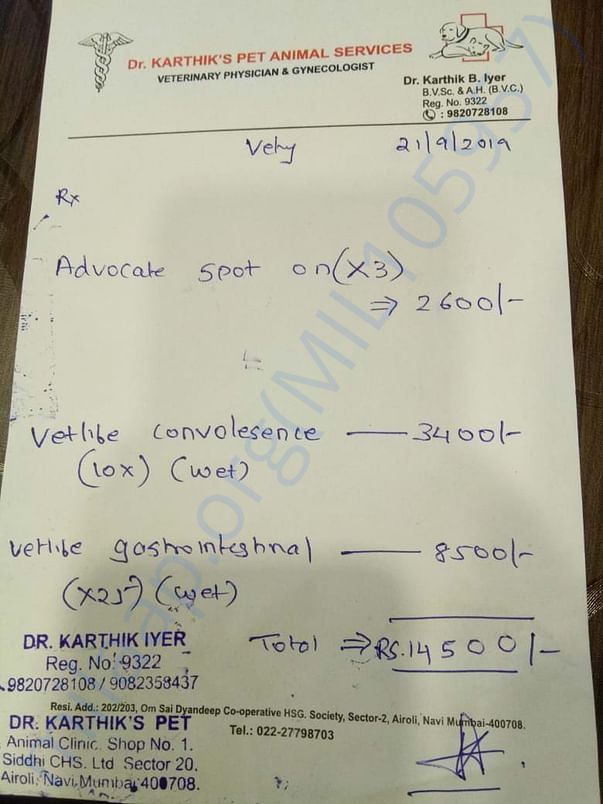 Dr. KARTHIK'S PET ANIMAL SERVICES
VETERINARY PHYSICIAN & GYNECOLOGIST
Dr. Karthik B. Iyer
B.V.Sc. & A.H. (B.V.C.)
Reg. No. 9322
: 9820728108
21/9/2019
Rx
Advocate spot on (x3)
⇒ 2600/-
Vetlibe convolesence — 3400/-
(10x) (wet)
Vetlibe gastrointestinal — 8500/-
(x25) (wet)
Total ⇒ RS. 14500/-
DR. KARTHIK IYER
Reg. No. 9322
9820728108 / 9082358437
Resi. Add.: 202/203, Om Sai Dyandeep Co-operative HSG. Society, Sector-2, Airoli, Navi Mumbai-400708.
Tel.: 022-27798703
DR. KARTHIK'S PET
Animal Clinic. Shop No. 1.
Siddhi CHS. Ltd Sector 20,
Airoli, Navi Mumbai 400708.
ap.org(MIL105957)